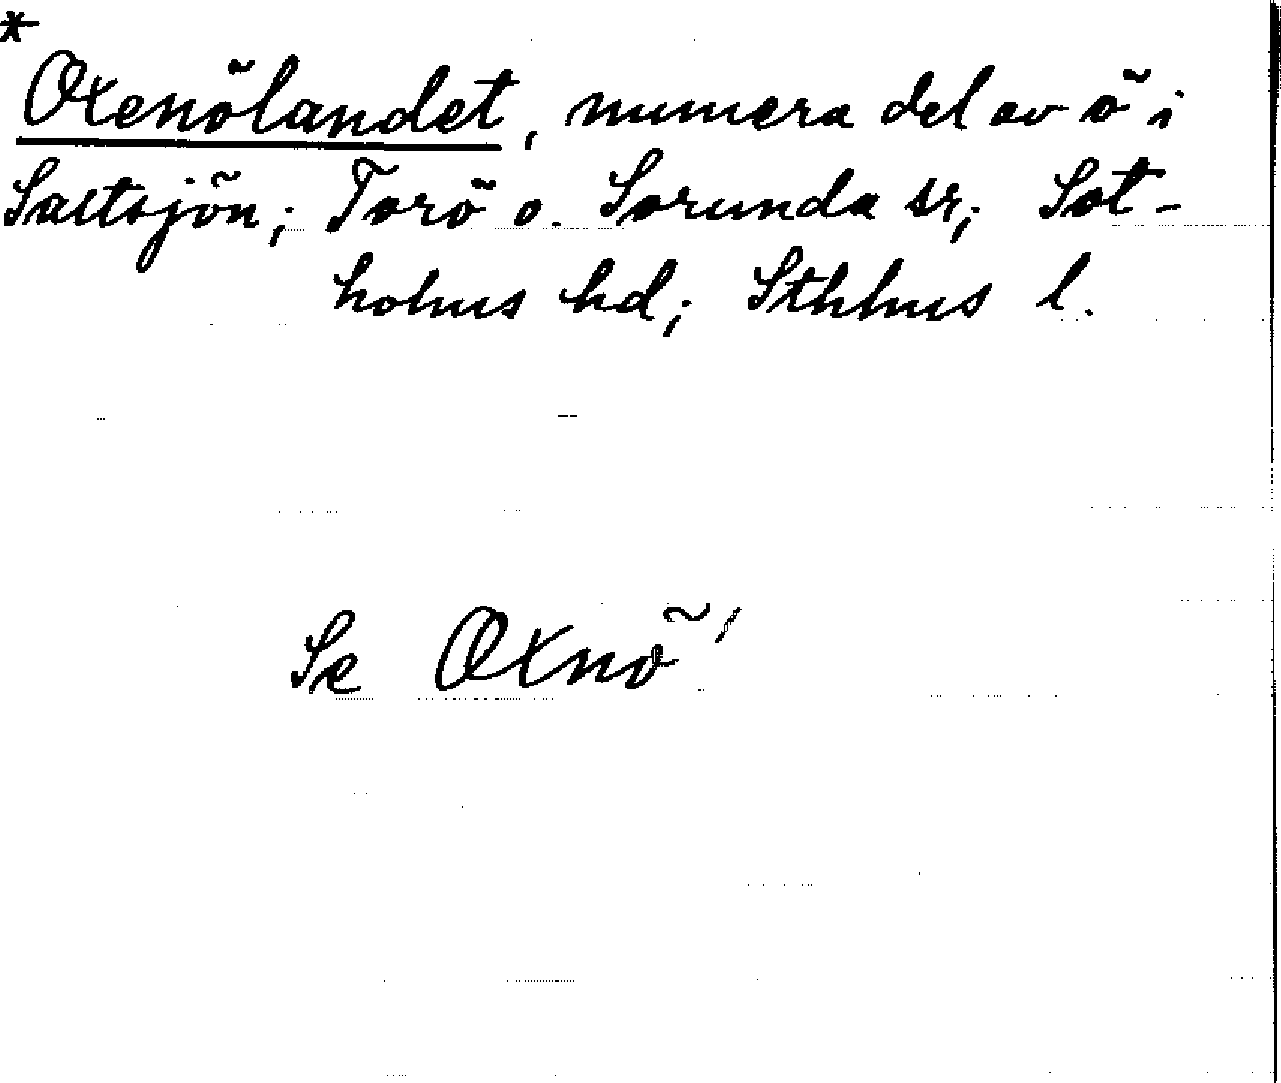 *
Oxenölandet, numera del av ö i
Saltsjön; Torö o. Sorunda sr; Sot-
holms hd; Sthlms l.
Se Oxnö